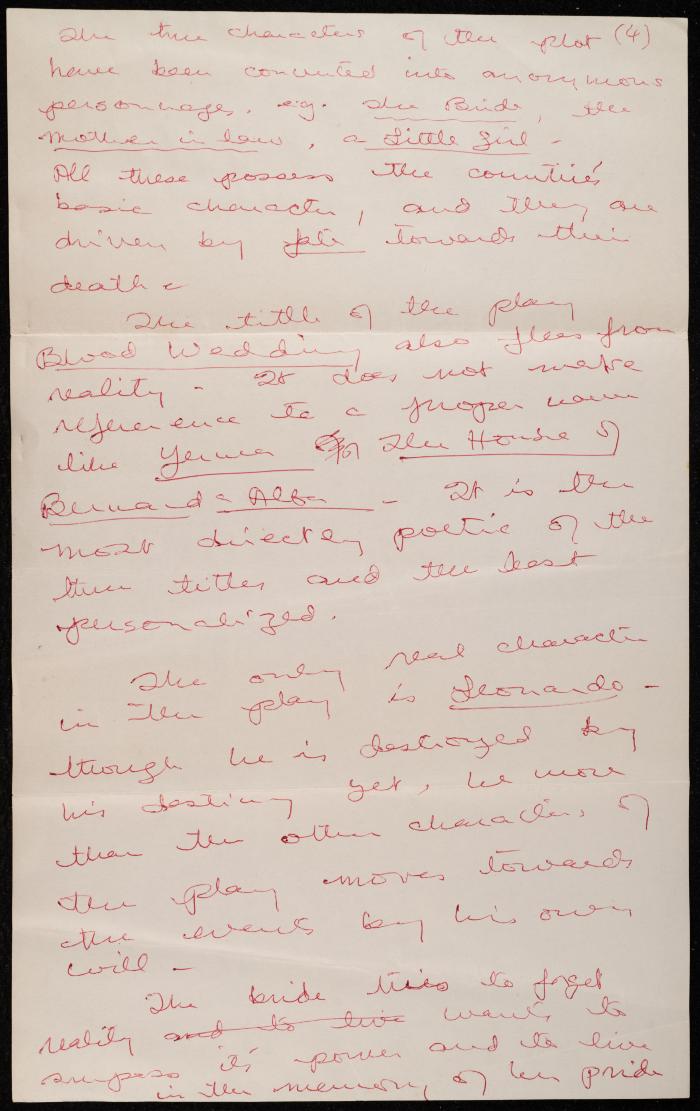 The true characters of the plot (4)
have been converted into anonymous
personnages. e.g. The Bride, the
Mother in law, a Little Girl -
All these possess the countries
basic character, and they are
driven by fate towards their
death -
The title of the play
Blood Wedding also flees from
reality - It does not make
reference to a proper name
like Yerma or The House of
Bernarda Alba - It is the
most directly poetic of the
three titles and the least
personalized.
The only real character
in the play is Leonardo -
though he is destroyed by
his destiny yet, he more
than the other characters of
the play moves towards
the events by his own
will -
The bride tries to forget
reality and to live wants to
surpass it's power and to live
in the memory of her pride